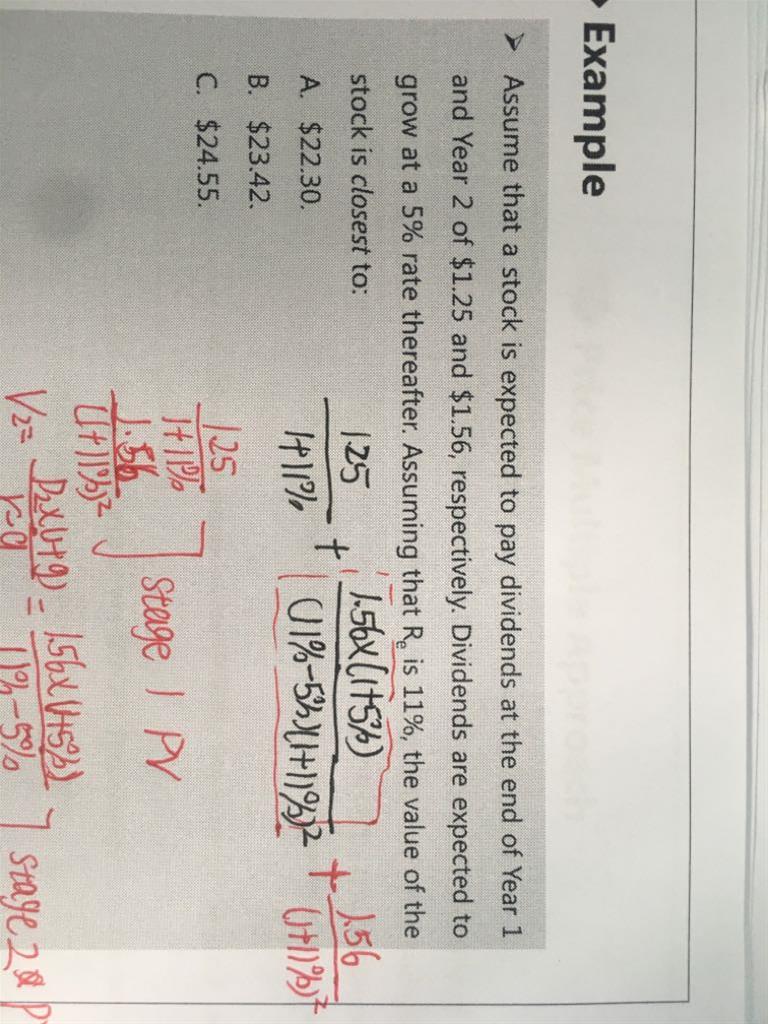 Example
➢ Assume that a stock is expected to pay dividends at the end of Year 1
and Year 2 of $1.25 and $1.56, respectively. Dividends are expected to
grow at a 5% rate thereafter. Assuming that Rₑ is 11%, the value of the
stock is closest to:
A. $22.30.
B. $23.42.
C. $24.55.
1.25 / 1+11% + 1.56×(1+5%) / (11%-5%)(1+11%)² + 1.56 / (1+11%)²
1.25 / 1+11%
1.56 / (1+11%)²
] stage 1 PV
V₂= D₂×(1+g) / r-g = 1.56×(1+5%) / 11%-5% ] stage 2